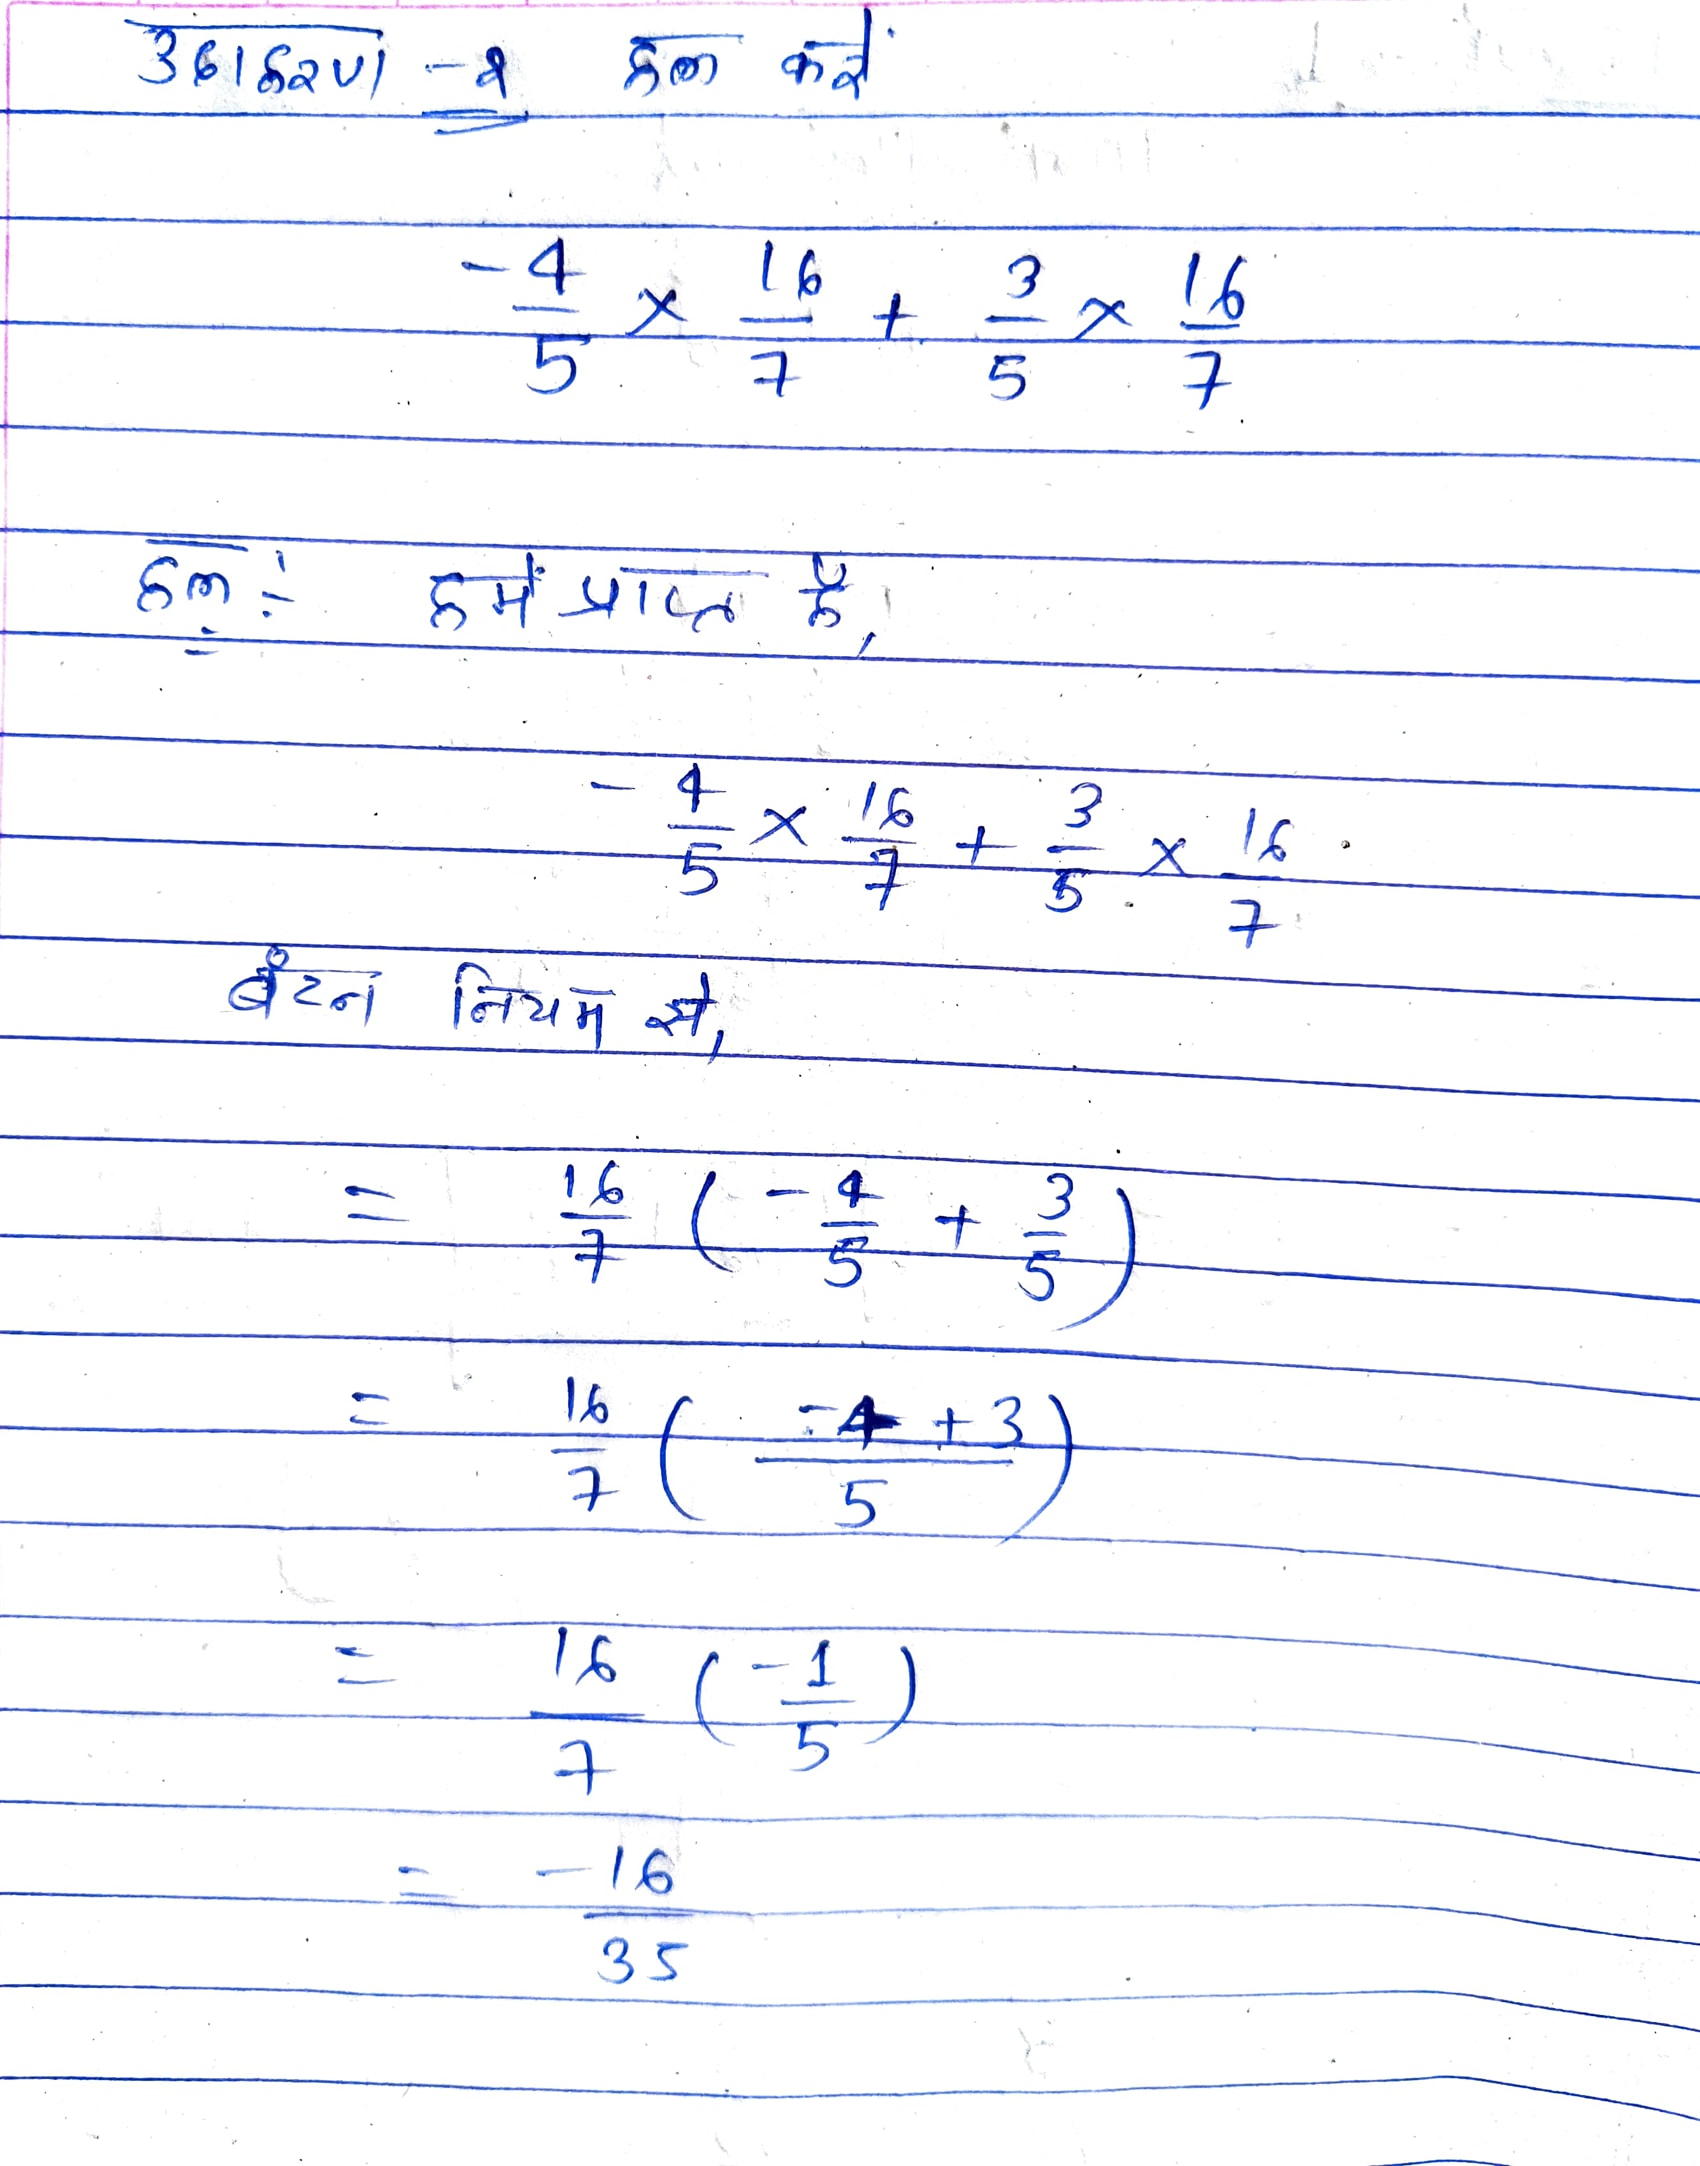 उदाहरण - १ हल करें
-4/5 × 16/7 + 3/5 × 16/7
हल :- हमें प्राप्त है,
-4/5 × 16/7 + 3/5 × 16/7
बंटन नियम से,
= 16/7 ( -4/5 + 3/5 )
= 16/7 ( (-4 + 3)/5 )
= 16/7 ( -1/5 )
= -16/35